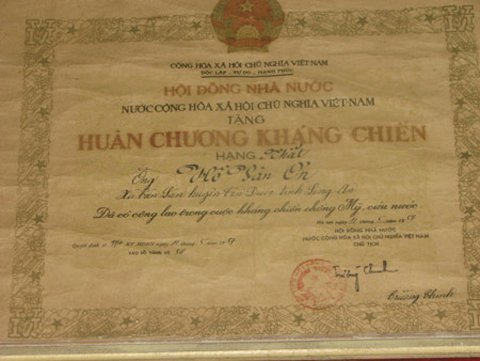 CỘNG HÒA XÃ HỘI CHỦ NGHĨA VIỆT NAM
ĐỘC LẬP - TỰ DO - HẠNH PHÚC
HỘI ĐỒNG NHÀ NƯỚC
NƯỚC CỘNG HÒA XÃ HỘI CHỦ NGHĨA VIỆT NAM
TẶNG
HUÂN CHƯƠNG KHÁNG CHIẾN
HẠNG Nhất
Ông Hồ Văn
Xã Tân huyện Cần Đước tỉnh Long An
Đã có công lao trong cuộc kháng chiến chống Mỹ, cứu nước
Hà nội ngày tháng 5 năm
Quyết định số KT/HĐNN ngày tháng 5 năm
VÀO SỔ VÀNG SỐ
HỘI ĐỒNG NHÀ NƯỚC
NƯỚC CỘNG HÒA XÃ HỘI CHỦ NGHĨA VIỆT NAM
CHỦ TỊCH
Trường Chinh
Trường Chinh